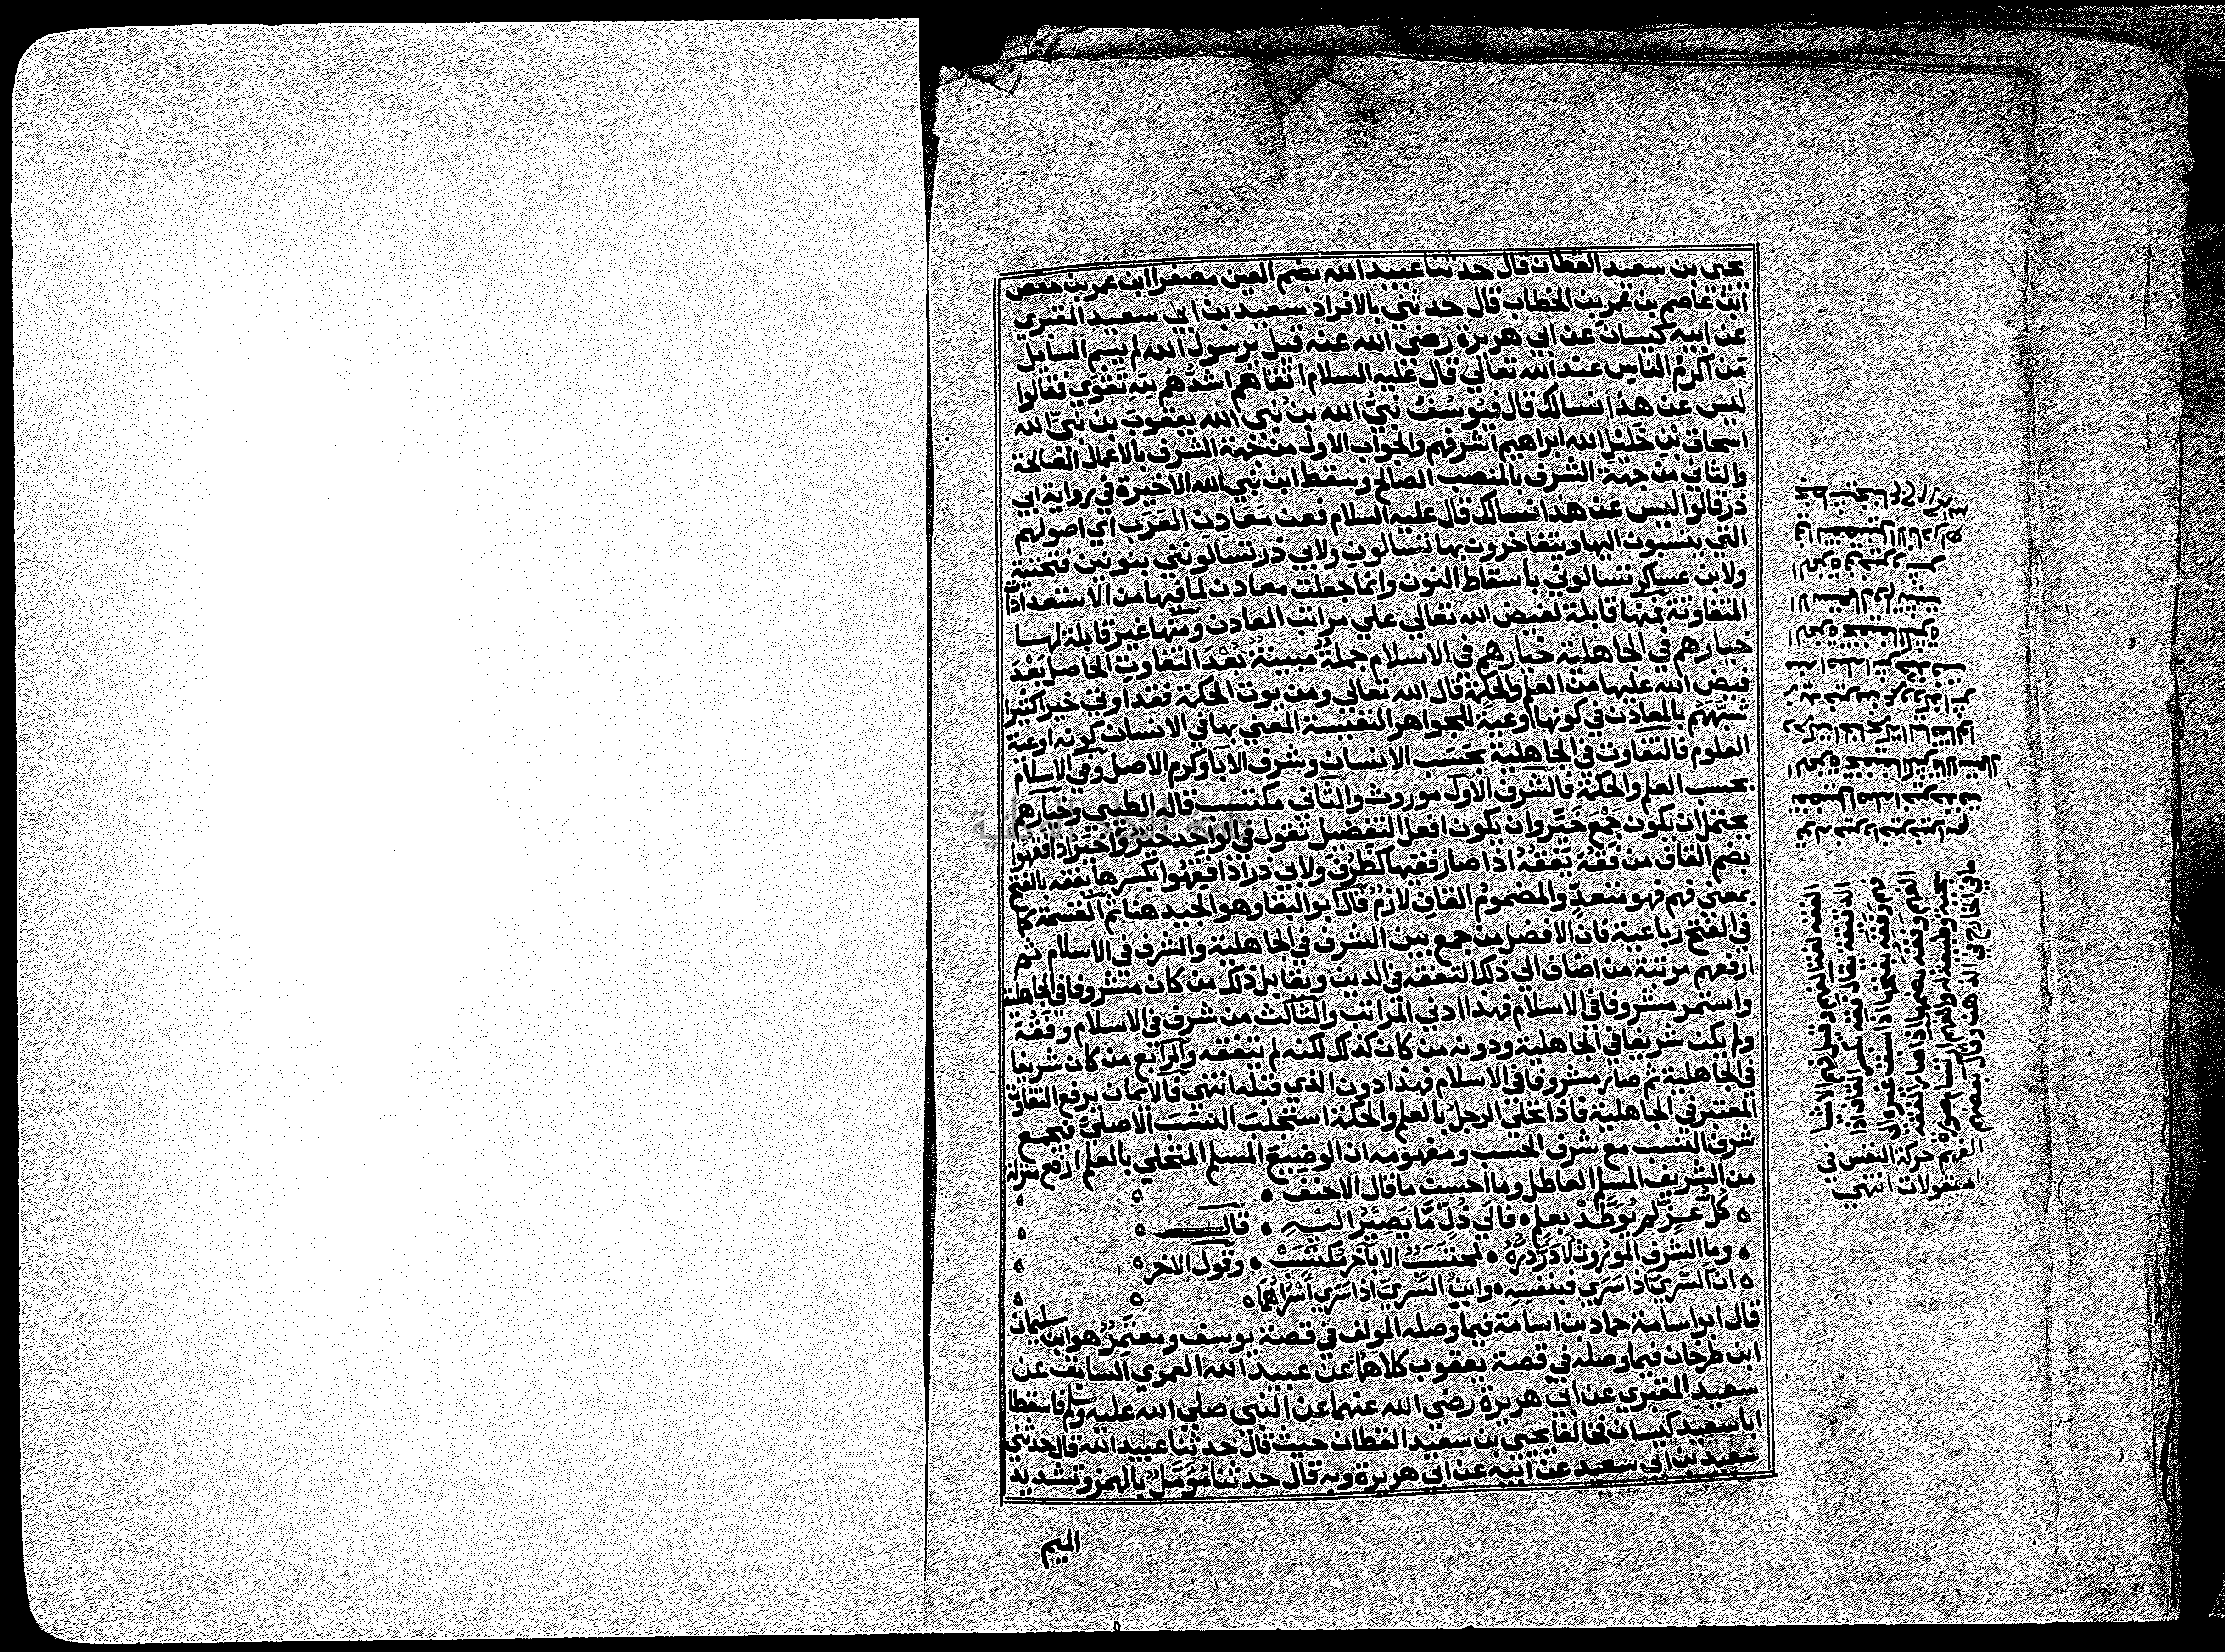 يحيى بن سعيد القطان قال حدثنا عبيد الله بضم العين مصغرا ابن عمر بن حفص
ابن عاصم بن عمر بن الخطاب قال حدثني بالافراد سعيد بن ابي سعيد المقبري
عن ابيه كيسان عن ابي هريرة رضي الله عنه قيل يرسول الله لم يسم السايل
من اكرم الناس عند الله تعالي قال عليه السلام اتقاهم اشدُّهُم لِلّهِ تَقوي فقالوا
ليس عن هذا نسالك قال فيوسُفُ نبيُّ الله بن نبي الله يعقوبَ بن نبيِّ الله
اسحاق بْنِ خَليلِ الله ابراهيم اشرفهم والجواب الاول من جهة الشرف بالاعمال الصالحة
والثاني من جهة الشرف بالمنصب الصالح وسقط ابن نبي الله الاخيرة في رواية ابي
ذر قالوا ليس عن هذا نسالك قال عليه السلام فعن مَعَادِنِ العَرَبِ اي اصولهم
التي ينسبون اليها ويتفاخرون بها تسالونِ ولابي ذر تسالونني بنونين فتحتية
ولابن عساكر تسالوني باسقاط النون وانما جعلت معادن لما فيها من الاستعدادات
المتفاوتة فمنها قابلة لفيض الله تعالي علي مراتب المعادن ومنها غير قابلة لها
خيارهم في الجاهلية خيارهم في الاسلام جملةٌ مبينةٌ بَعْدَ التفاوتِ الحاصل بَعْدَ
فيض الله عليها من العلم والحكمة قال الله تعالي ومن يوت الحكمة فقد اوتي خيرا كثيرا
شبَّهَهُم بالمعادن في كونها اوعيةً للجواهر النفيسة المعني بها في الانسان كونه اوعية
العلوم فالتفاوت في الجاهلية بحَسَب الانسان وشرف الآبا وكرم الاصل وفي الاسلام
بحسب العلم والحكمة فالشرف الاول موروث والثاني مكتسب قاله الطيبي وخيارهم
يحتمل ان يكون جَمْعَ خَيِّر وان يكون افعل التفضيل تقول في الواحد خَيْرٌ واَخْيَرُ اذا فَقُهُوا
بضم القاف من فَقُهَ يَفْقُهُ اذا صار فقيها كظَرُفَ ولابي ذر اذا فَقِهُوا بكسرها يفقه بالفتح
بمعني فهم فهو متعدٍّ والمضمومُ القافِ لازمٌ قال ابو البقا وهو الجيد هنا ثم القسمة كما
في الفتح رباعية فان الافضل من جمع بين الشرف في الجاهلية والشرف في الاسلام ثم
ارفعهم مرتبة من اضاف الي ذلك التفقه في الدين ويقابل ذلك من كان مشروفا في الجاهلية
واستمر مشروفا في الاسلام فهذا ادني المراتب والثالث من شرف في الاسلام وفَقُهَ
ولم يكن شريفا في الجاهلية ودونه من كان كذلك لكنه لم يتفقه والرابع من كان شريفا
في الجاهلية ثم صار مشروفا في الاسلام فهذا دون الذي قبله انتهي فالايمان يرفع التفاوت
المعتبر في الجاهلية فاذا تحلي الرجلُ بالعلم والحكمة استجلبَ النسَبَ الاصليَّ فيجمع
شرف النسب مع شرف الحسب ومفهومه ان الوضيع المسلم المتحلي بالعلم ارفع منزلة
من الشريف المسلم العاطل وما احسن ما قال الاحنف
كلُّ عِزٍّ لم يُوَطَّدْ بعلم فالي ذُلٍّ مَّا يَصِيرُ اليْهِ قال
وما الشرف الموروث لا دَرَّ دَرُّهُ لمحتسَبٍ الا بآخر مُكتَسَبْ وقول الاخر
ان السَّرِيَّ اذا سَرَي فبنفسِهِ وابنُ السَّرِيِّ اذا سَرَي اَسْرَاهُما
قال ابو اسامة حماد بن اسامة فيما وصله المولف في قصة يوسف ومعتمِرٌ هو ابن سليمان
ابن طرخان فيما وصله في قصة يعقوب كلاهما عن عبيد الله العمري السابق عن
سعيد المقبري عن ابي هريرة رضي الله عنهما عن النبي صلي الله عليه وسلم فاسقطا
ابا سعيد كيسان فخالفا يحيي بن سعيد القطان حيث قال حدثنا عبيد الله قال حدثني
سعيد بن ابي سعيد عن ابيه عن ابي هريرة وبه قال حدثنا مُؤَمَّلٌ بالهمز وتشديد
الميم
الفقه لغة الفهم وقيل فهم الاشيا
الدقيقة يقال فقه بكسر القاف اذا
فهم وفقه بفتحها اذا سبق غيره الي
الفهم وفقه بضمها اذا صار الفقه
سجية وطبيعة له والفهم ارتسام صورة
ما في الخارج في الذهن وقال بعضهم
الفهم حركة النفس في
المعقولات انتهي